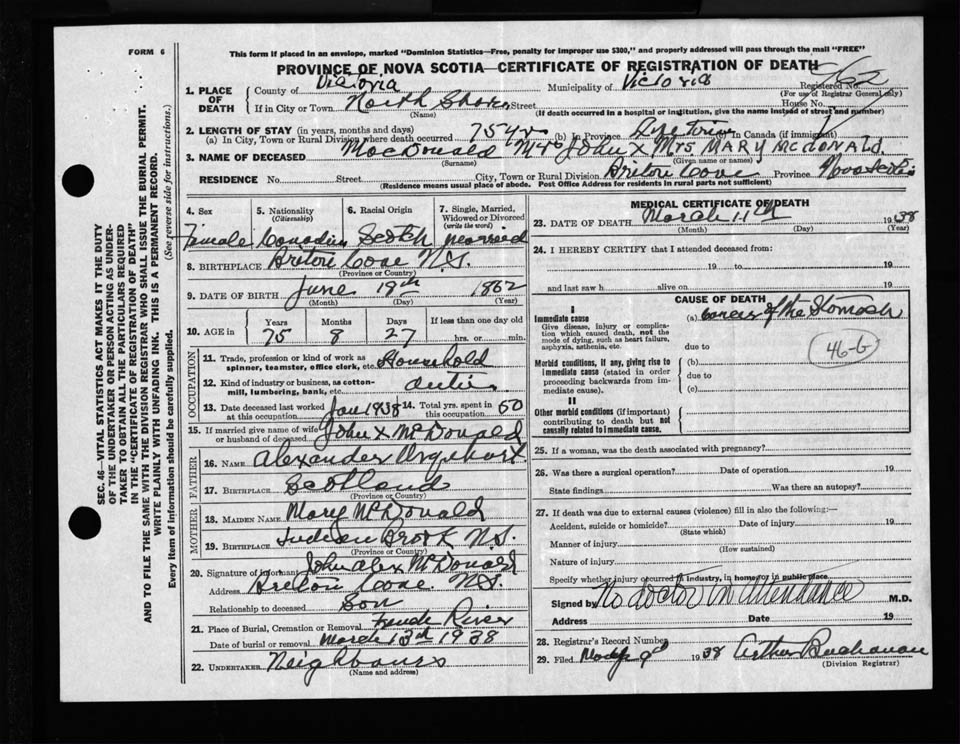 FORM 6
This form if placed in an envelope, marked "Dominion Statistics—Free, penalty for improper use $300," and properly addressed will pass through the mail "FREE"
PROVINCE OF NOVA SCOTIA—CERTIFICATE OF REGISTRATION OF DEATH
1. PLACE OF DEATH
County of Victoria Municipality of Victoria Registered No.
(For use of Registrar General only)
If in City or Town North Shore Street House No.
(Name) (If death occurred in a hospital or institution, give the name instead of street and number)
2. LENGTH OF STAY (in years, months and days)
(a) In City, Town or Rural Division where death occurred 75 (b) In Province Life time (c) In Canada (if immigrant)
3. NAME OF DECEASED MacDonald Mrs John X Mrs. MARY McDONALD.
(Surname) (Given name or names)
RESIDENCE No. Street City, Town or Rural Division Briton Cove Province Nova Scotia
(Residence means usual place of abode. Post Office Address for residents in rural parts not sufficient)
4. Sex 5. Nationality (Citizenship) 6. Racial Origin 7. Single, Married, Widowed or Divorced (write the word)
Female Canadian Scotch married
8. BIRTHPLACE Briton Cove N.S.
(Province or Country)
9. DATE OF BIRTH June 19th 1862
(Month) (Day) (Year)
10. AGE in Years Months Days If less than one day old
75 8 27 hrs. or min.
OCCUPATION
11. Trade, profession or kind of work as spinner, teamster, office clerk, etc. Household
12. Kind of industry or business, as cotton-mill, lumbering, bank, etc. duties
13. Date deceased last worked at this occupation Jan 1938 14. Total yrs. spent in this occupation 50
15. If married give name of wife or husband of deceased John X McDonald
FATHER
16. NAME Alexander Urquhart
17. BIRTHPLACE Scotland
(Province or Country)
MOTHER
18. MAIDEN NAME Mary McDonald
19. BIRTHPLACE Indian Brook N.S.
(Province or Country)
20. Signature of informant John Alex McDonald
Address Briton Cove N.S.
Relationship to deceased Son
21. Place of Burial, Cremation or Removal French River
Date of burial or removal March 13th 1938
22. UNDERTAKER Neighbours
(Name and address)
MEDICAL CERTIFICATE OF DEATH
23. DATE OF DEATH March 11th 1938
(Month) (Day) (Year)
24. I HEREBY CERTIFY that I attended deceased from:
19 to 19
and last saw h alive on 19
CAUSE OF DEATH
I
Immediate cause (a) cancer of the Stomach
Give disease, injury or complication which caused death, not the mode of dying, such as heart failure, asphyxia, asthenia, etc.
due to
46-b
Morbid conditions, if any, giving rise to immediate cause (stated in order proceeding backwards from immediate cause).
(b)
due to
(c)
II
Other morbid conditions (if important) contributing to death but not causally related to immediate cause.
25. If a woman, was the death associated with pregnancy?
26. Was there a surgical operation? Date of operation 19
State findings Was there an autopsy?
27. If death was due to external causes (violence) fill in also the following:—
Accident, suicide or homicide? Date of injury 19
(State which)
Manner of injury
(How sustained)
Nature of injury
Specify whether injury occurred in industry, in home or in public place
Signed by No doctor in attendance M.D.
Address Date 19
28. Registrar's Record Number
29. Filed 1938 Arthur Buchanan
(Division Registrar)
SEC. 46—VITAL STATISTICS ACT MAKES IT THE DUTY
OF THE UNDERTAKER OR PERSON ACTING AS UNDER-
TAKER TO OBTAIN ALL THE PARTICULARS REQUIRED
IN THE "CERTIFICATE OF REGISTRATION OF DEATH"
AND TO FILE THE SAME WITH THE DIVISION REGISTRAR WHO SHALL ISSUE THE BURIAL PERMIT.
WRITE PLAINLY WITH UNFADING INK. THIS IS A PERMANENT RECORD.
Every item of information should be carefully supplied. (See reverse side for instructions.)